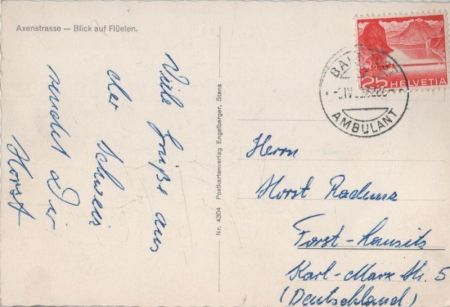 Axenstrasse — Blick auf Flüelen.
Viele Grüße aus
der Schweiz
sendet Dir
Horst
Nr. 4304 Postkartenverlag Engelberger, Stans
25 HELVETIA
AMBULANT
Herrn
Horst Raduma
Forst-Lausitz
Karl-Marx Str. 5
(Deutschland)